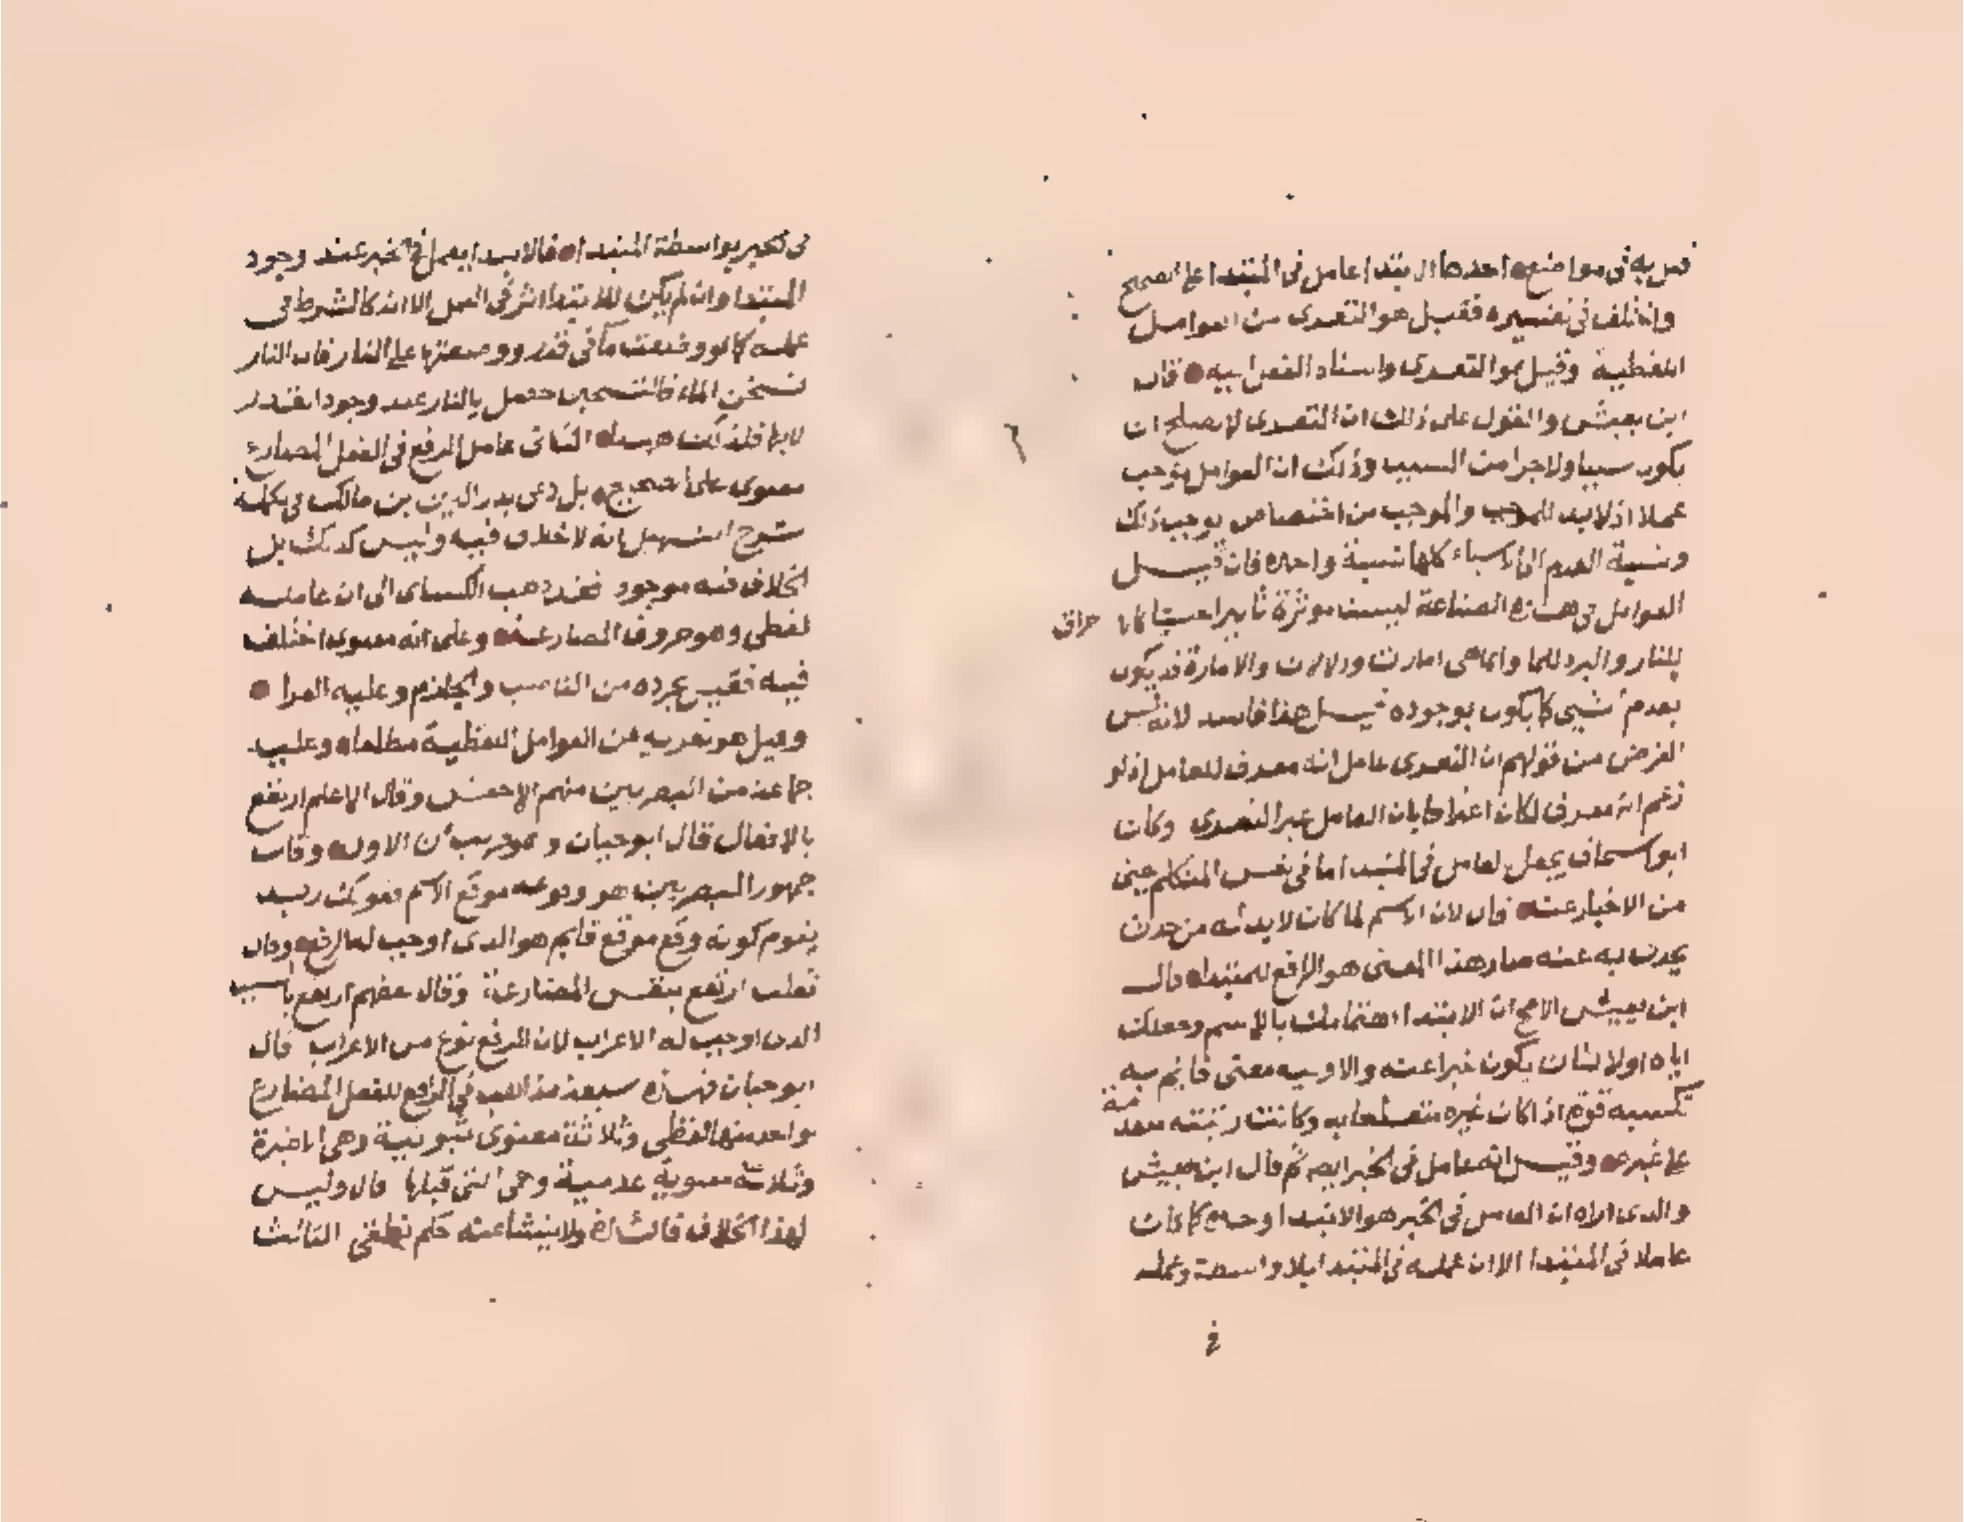 قيل به في مواضع احدها الابتدا عامل في المبتدا على الصحيح
واختلف في تفسيره فقيل هو التعرى من العوامل
اللفظية وقيل هو التعرى واسناد الفعل اليه قال
ابن يعيش والقول على ذلك ان التعرى لا يصلح ان
يكون سببا ولا جزا من السبب وذلك ان العوامل توجب
عملا اذ لابد للموجب والموجب من اختصاص يوجب ذلك
ونسبة العدم الى الاشياء كلها نسبة واحدة فان قيل
العوامل في هذه الصناعة ليست موثرة تاثيرا حسيا كالاحراق
للنار والبرد للما وانما هى امارت ودلالات والامارة قد يكون
بعدم شيى كما يكون بوجوده قيل هذا فاسد لانه ليس
الغرض من قولهم ان التعرى عامل انه معرف للعامل اذ لو
زعم انه معرف لكان اعترافا بان العامل غير التعرى وكان
ابو اسحاق يجعل العامل في المبتدا ما في نفس المتكلم يعنى
من الاخبار عنه قال لان الاسم لما كان لابد له من حدث
يحدث به عنه صار هذا المعنى هو الرافع للمبتدا قال
ابن يعيش الاصح ان الابتدا اهتمامك بالاسم وجعلك
اياه اولا لثان يكون خبرا عنه والاوليه معنى قايم به
تكسبه قوة اذا كان غيره متعلقا به وكانت رتبته متقدمة
على غيره وقيل انه عامل في الخبر ايضا ثم قال ابن يعيش
والذى اراه ان العامل في الخبر هو الابتدا وحده كما كان
عاملا في المبتدا الا ان عمله في المبتدا بلا واسطة وعمله
في
في الخبر بواسطة المبتدا فالابتدا يعمل في الخبر عند وجود
المبتدا وان لم يكن للابتدا اثر في العمل الا انه كالشرط في
عمله كما لو وضعت ما في قدر ووضعتها على النار فان النار
تسخن الما فالتسخين حصل بالنار عند وجود القدر
لا بها فلذلك هنا الثانى عامل الرفع في الفعل المضارع
معنوى على الصحيح بل ادعى بدر الدين بن مالك في تكملة
شرح التسهيل انه لا خلاف فيه وليس كذلك بل
الخلاف فيه موجود فقد ذهب الكساى الى ان عامله
لفظى وهو حروف المضارعة وعلى انه معنوى اختلف
فيه فقيل تجرده من الناصب والجازم وعليه الفرا
وقيل هو تعريه من العوامل اللفظية مطلقا وعليه
جماعة من البصريين منهم الاخفش وقال الاعلم ارتفع
بالاهمال قال ابو حيان وهو قريب من الاول وقال
جمهور البصريين هو وقوعه موقع الاسم فقولك زيد
يقوم كونه وقع موقع قايم هو الذى اوجب له الرفع وقال
ثعلب ارتفع بنفس المضارعة وقال بعضهم ارتفع بالسبب
الذى اوجب له الاعراب لان الرفع نوع من الاعراب قال
ابو حيان فهذه سبعة مذاهب في الرافع للفعل المضارع
واحد منها لفظى وثلاثة معنوى ثبوتية وهى الاخيرة
وثلاثة معنوية عدمية وهى التى قبلها قال وليس
لهذا الخلاف فايدة ولا ينشا عنه حكم نطقى الثالث